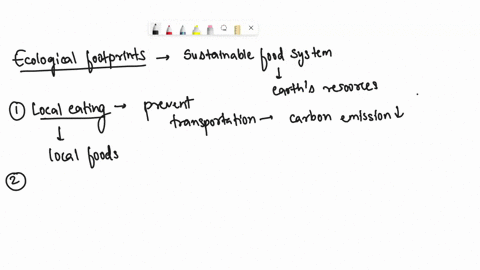 Ecological footprints → Sustainable food system
↓
earth's resources
① Local eating → prevent
transportation → carbon emission ↓
↓
local foods
②